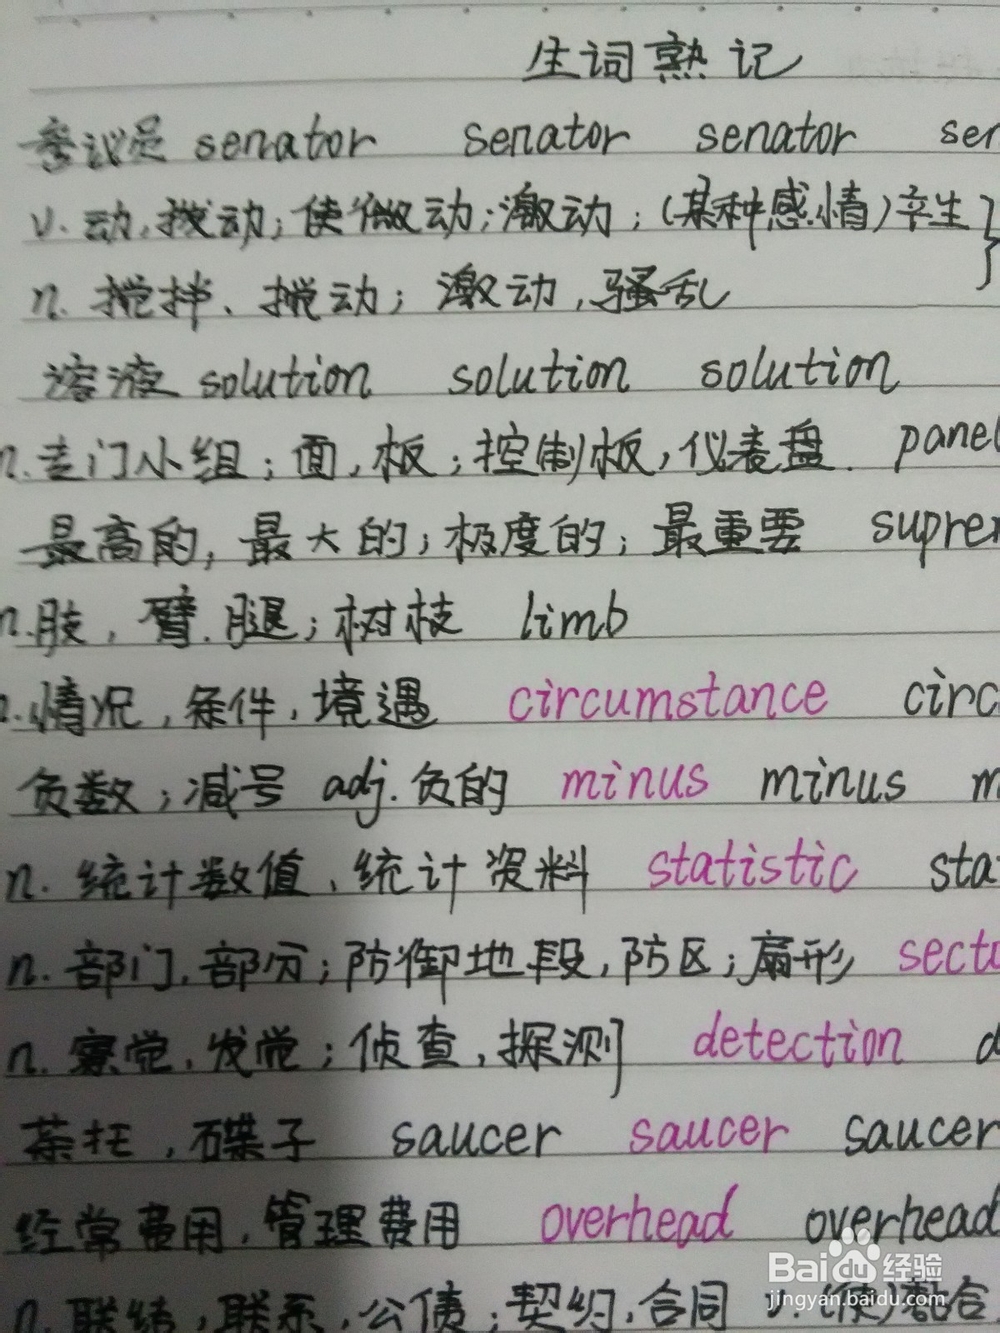 生词熟记
参议员 senator senator senator sen
v. 动,拨动;使微动;激动;(某种感情)产生
n. 搅拌、搅动;激动,骚乱
溶液 solution solution solution
n. 专门小组;面,板;控制板,仪表盘. panel
最高的,最大的;极度的;最重要 suprem
n. 肢,臂.腿;树枝 limb
n. 情况,条件,境遇 circumstance circ
负数;减号 adj. 负的 minus minus m
n. 统计数值,统计资料 statistic sta
n. 部门,部分;防御地段,防区;扇形 secto
n. 察觉,发觉;侦查,探测 detection d
茶托,碟子 saucer saucer saucer
经常费用,管理费用 overhead overhead
n. 联结,联系,公债;契约,合同 v. (使)黏合
Baidu 经验
jingyan.baidu.com